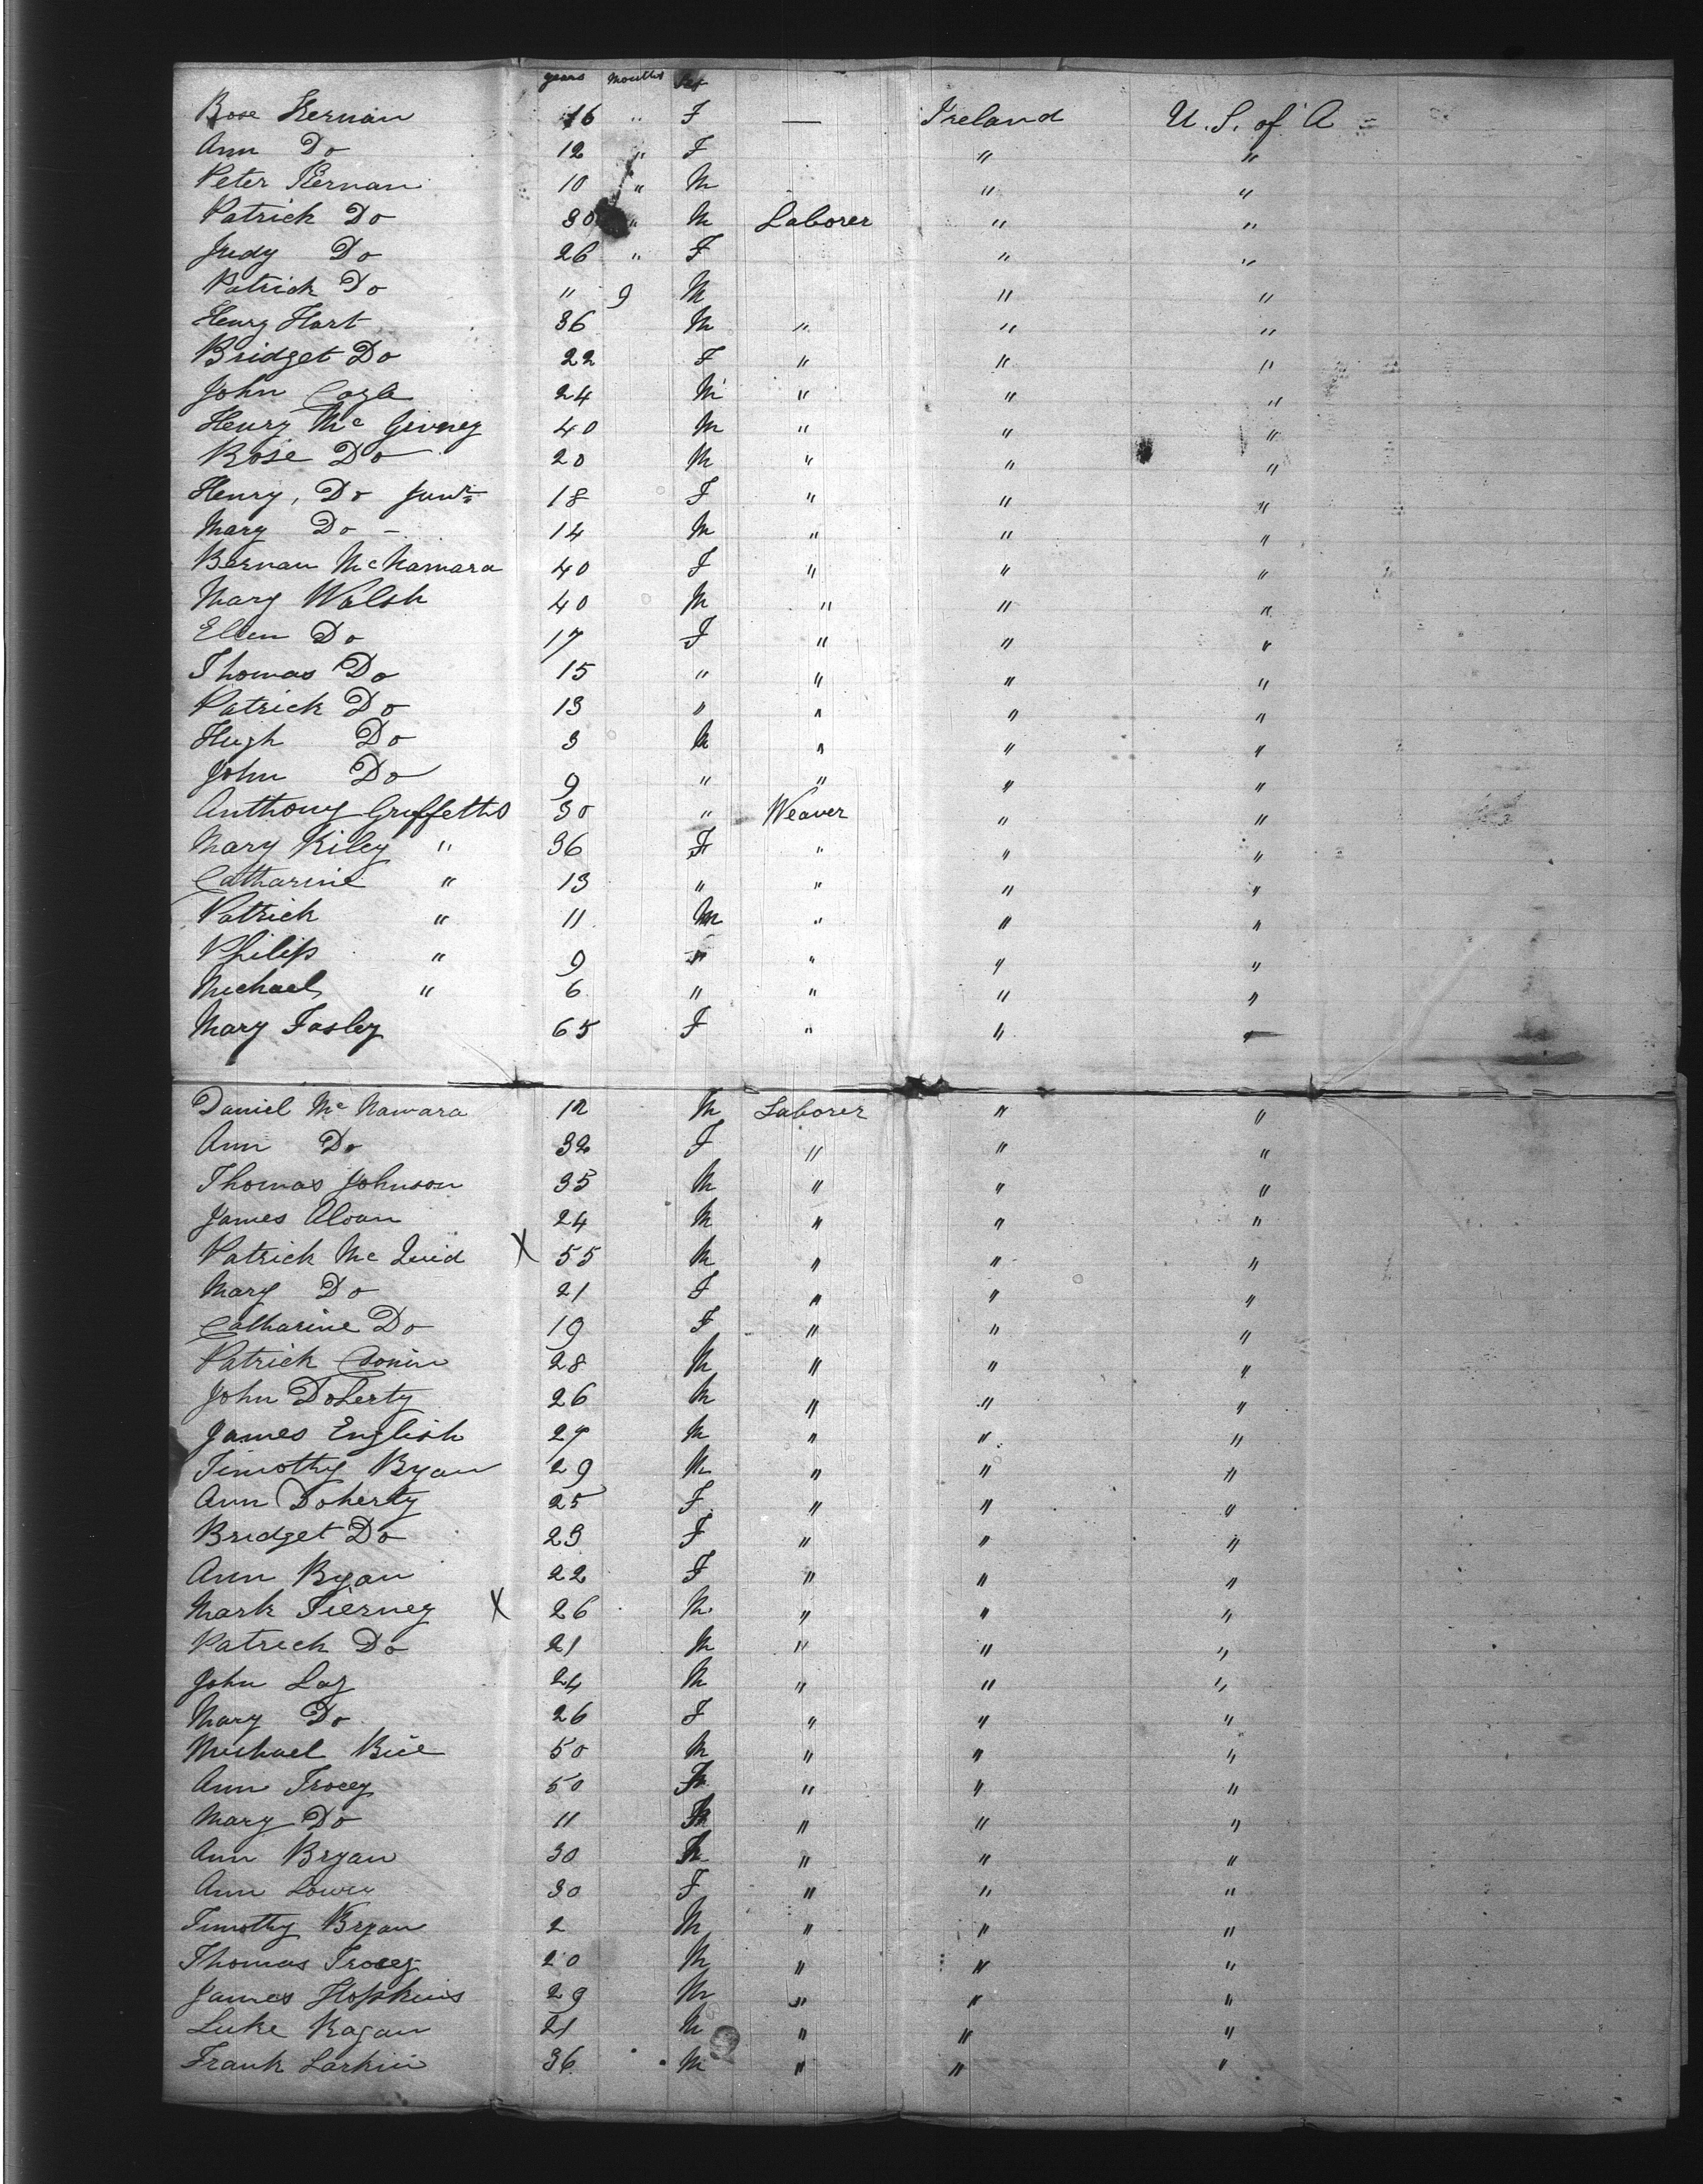 years months Sex
Rose Kernan 16 " F — Ireland U. S. of A
Ann Do 12 " F " "
Peter Kernan 10 " M " "
Patrick Do 30 " M Laborer " "
Judy Do 26 " F " "
Patrick Do " 9 M " "
Henry Hart 36 M " " "
Bridget Do 22 F " " "
John 24 M " " "
Henry Mc Givney 40 M " " "
Rose Do 20 M " " "
Henry, Do Junr 18 F " " "
Mary Do - 14 M " " "
Bernan McNamara 40 F " " "
Mary Walsh 40 M " " "
Ellen Do 17 F " " "
Thomas Do 15 " " " "
Patrick Do 13 " " " "
Hugh Do 3 M " " "
John Do 9 " " " "
Anthony Griffeths 30 " Weaver " "
Mary Riley " 36 F " " "
Catharine " 13 " " " "
Patrick " 11 M " " "
Philip " 9 " " " "
Michael " 6 " " " "
Mary Fasley 65 F " " "
Daniel Mc Namara 12 M Laborer " "
Ann Do 32 F " " "
Thomas Johnson 35 M " " "
James Aloan 24 M " " "
Patrick Mc Quid X 55 M " " "
Mary Do 21 F " " "
Catharine Do 19 F " " "
Patrick Cronin 28 M " " "
John Doherty 26 M " " "
James English 27 M " " "
Timothy Ryan 29 M " " "
Ann Doherty 25 F " " "
Bridget Do 23 F " " "
Ann Ryan 22 F " " "
Mark Tierney X 26 M " " "
Patrick Do 21 M " " "
John Loy 24 M " " "
Mary Do 26 F " " "
Michael Rice 50 M " " "
Ann Tracey 50 F " " "
Mary Do 11 F " " "
Ann Bryan 30 F " " "
Ann Lowry 30 F " " "
Timothy Bryan 2 M " " "
Thomas Tracey 20 M " " "
James Hopkins 29 M " " "
Luke Ragan 21 M " " "
Frank Larkin 36 M " " "